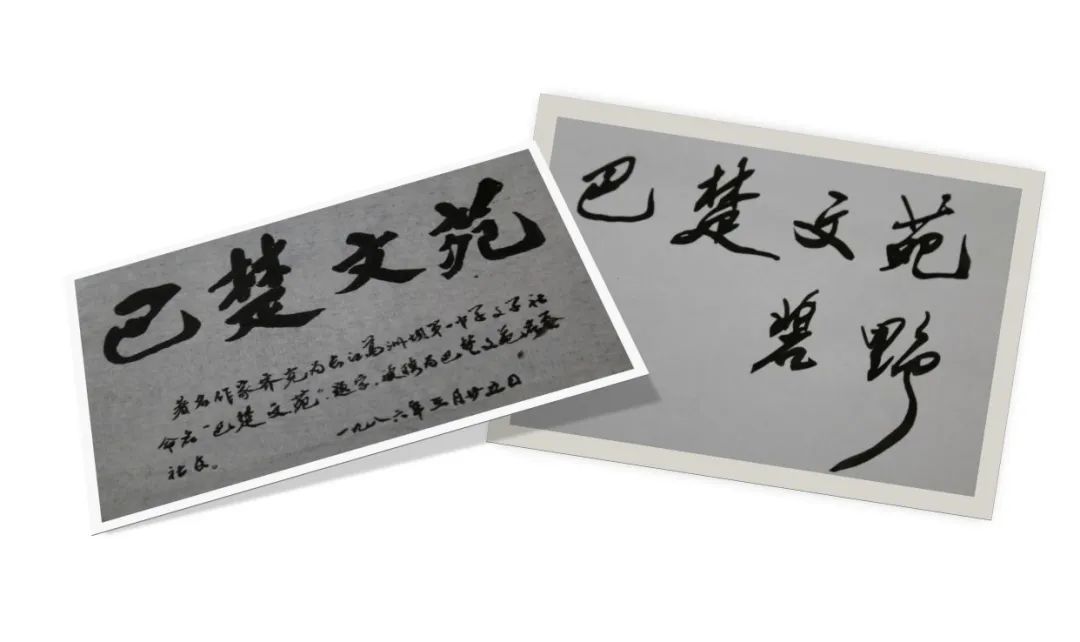 巴楚文苑
著名作家为长江葛洲坝第一中学文学社
命名“巴楚文苑”,题字,被聘为巴楚文苑名誉
社长。
一九八六年三月廿五日
巴楚文苑
碧野